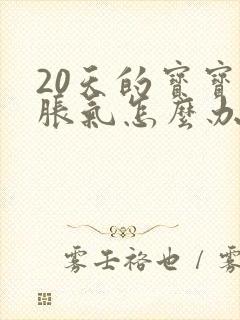 20天的寶寶
脹氣怎麼办
雾壬裕也 / 雾